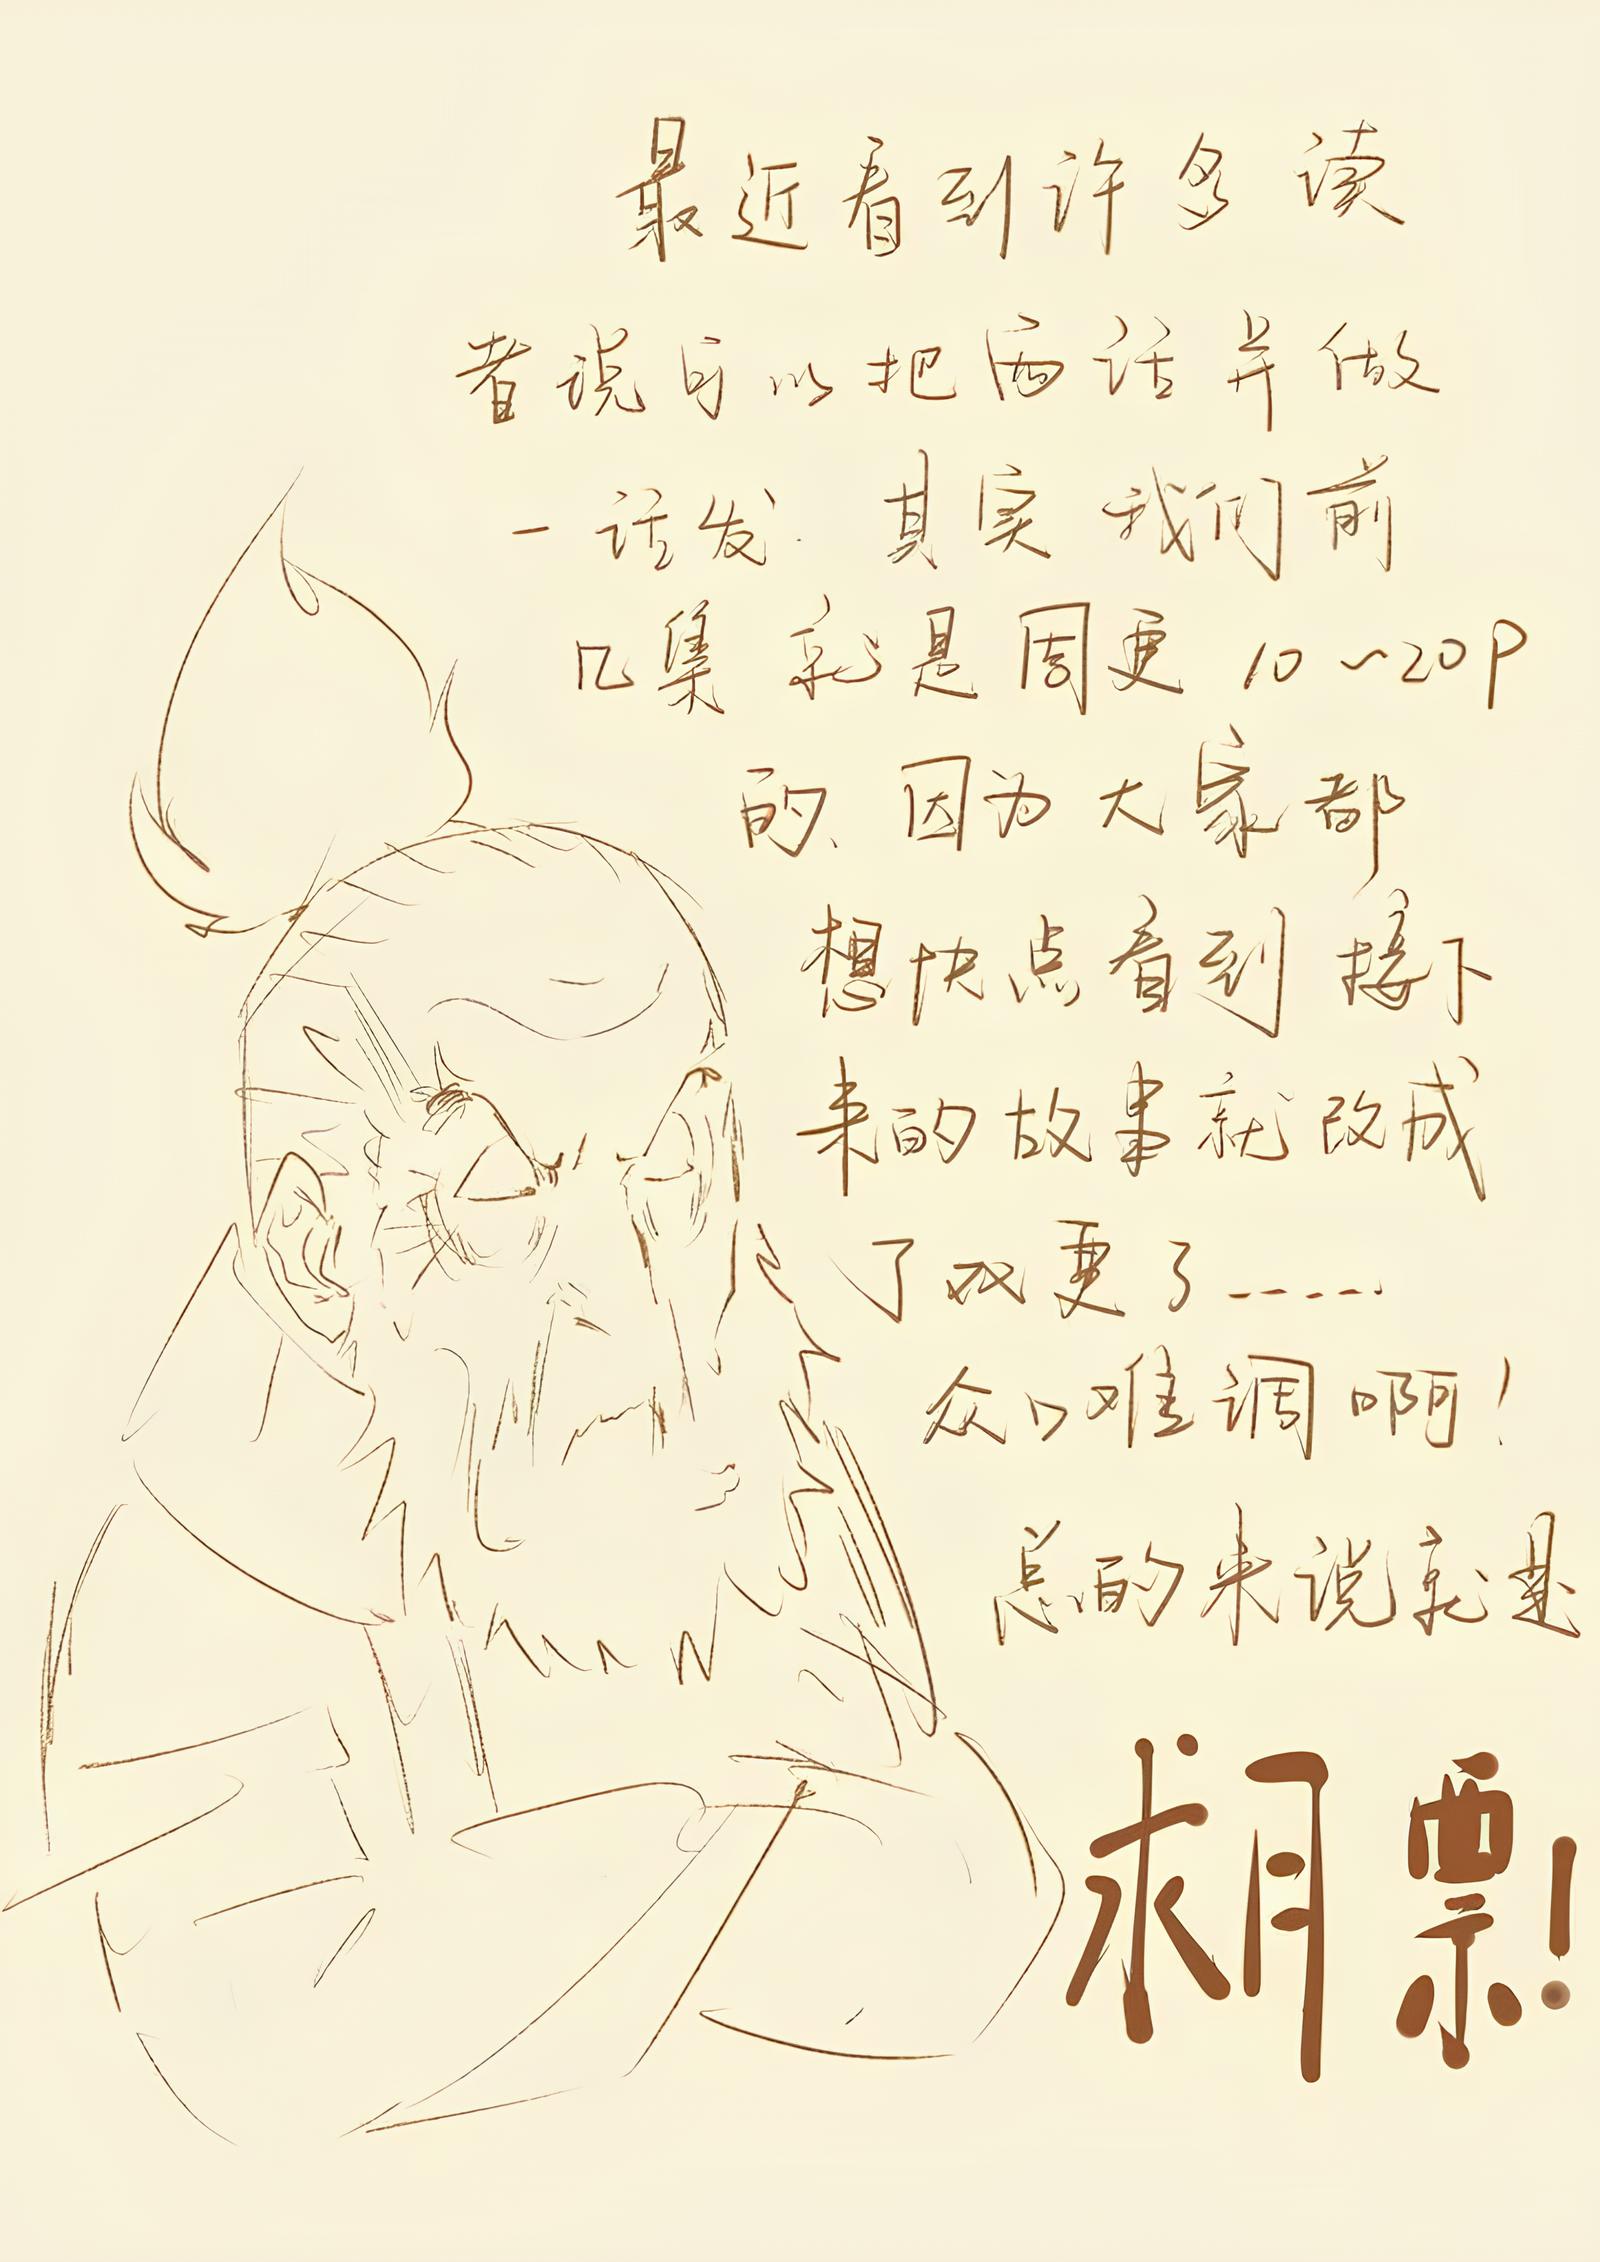 最近看到许多读
者说可以把两话并做
一话发. 其实我们前
几集就是周更10~20P
的、因为大家都
想快点看到接下
来的故事就改成
了双更了……
众口难调啊!
总的来说就是
求月票!